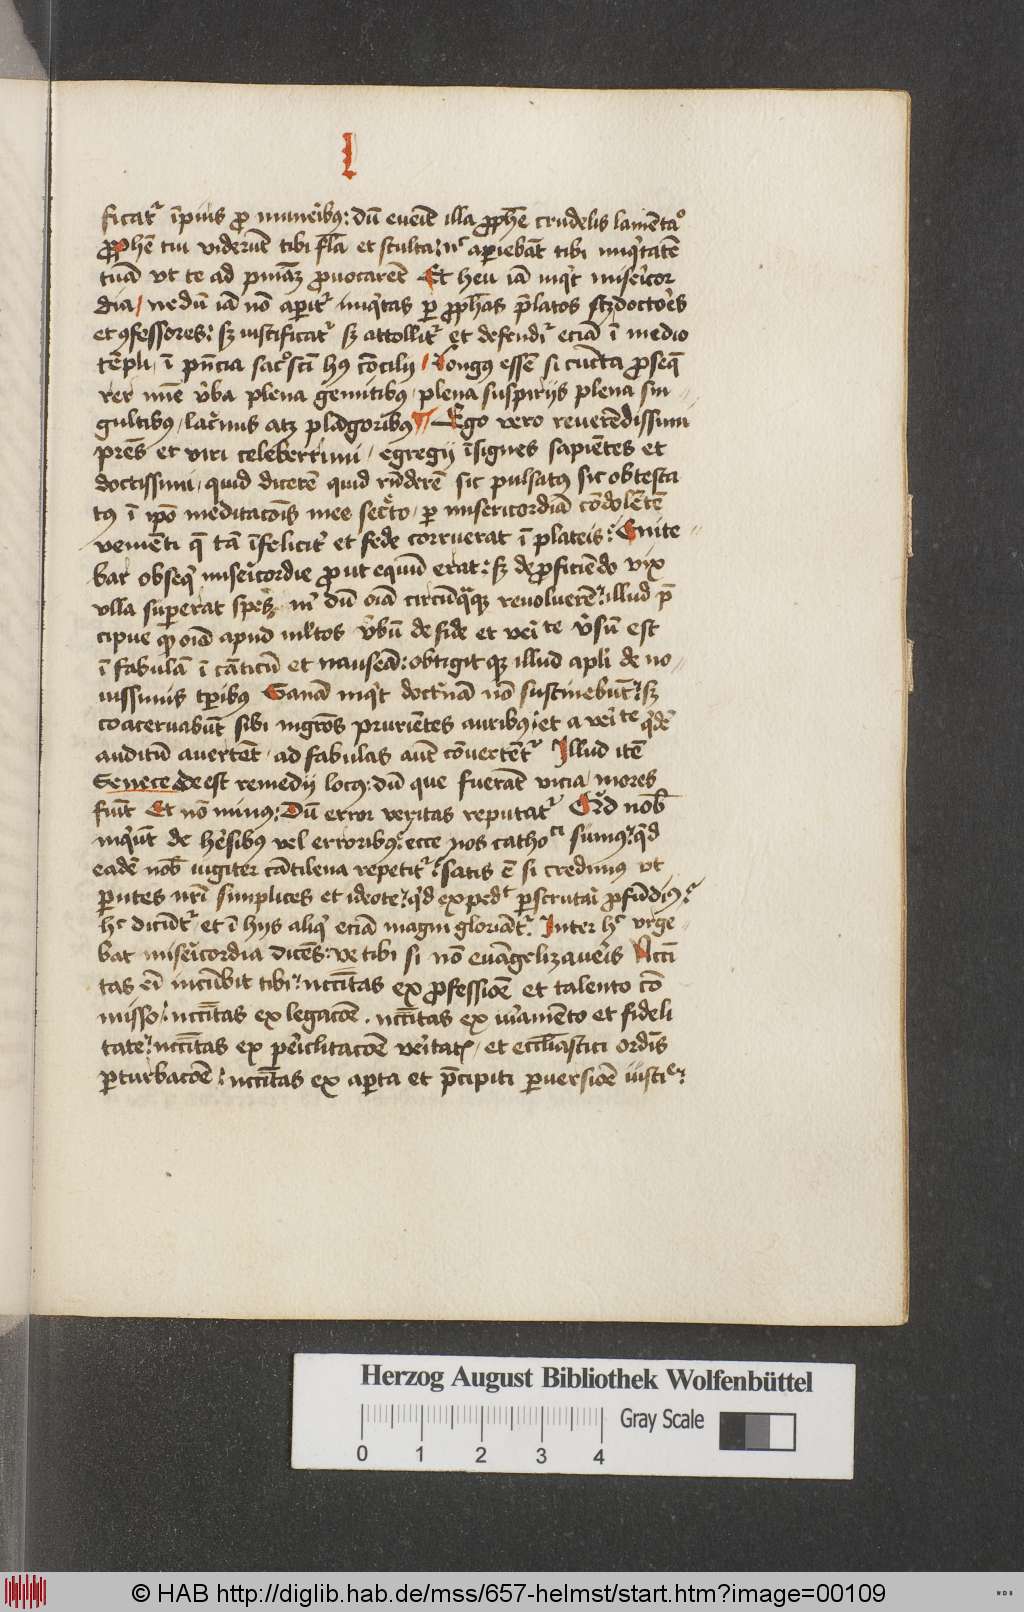 l
ficatʳ īpius ꝓ muneribꝰ: dū eveiē illa ꝓphē crudelis lamēta°
ꝓphē tui viderūt tibi fl̄a et stulta: nᶜ aꝑiebāt tibi iniqͥtatē
tuā vt te ad pm̄aꝫ ꝓuocarēt Et heu iā inqͥt miẜicor
dia / nedū iā nō aꝑitʳ iniqͥtas ꝑ ꝓphās p̄latos doctoẜs
et ꝯfessores: sꝫ iustificatʳ sꝫ attollitʳ et defendiʳ eciā ī medio
tēpli / ī pn̄cia sacͦscī hꝰ cōcilij / Longꝰ essē si cūcta ꝓseq̄
rer nūc ꝟba plena gemitibꝰ / plena suspirijs plena sin⸗
gultibꝰ / lacͥmis atꝫ plāgoribꝰ ¶ Ego vero reuerēdissimi
prēs et viri celeberrimi / egregij īsignes sapiētes et
doctissimi / quid dicerē quid rn̄derē sic pulsatꝰ sic obtesta
tꝰ ī ipō meditacōis mee secͤto / ꝑ misericordiā cōdolētē
vemēti q̄ tā īfelicitʳ et fede corruerat ī plateis: Enite⸗
bar obseqͥ miẜicordie ꝓut equū erat: sꝫ de ꝓficiēdo vix
vlla suꝑerat spes: nᶦ dū oīa circūqͣqꝫ reuoluerē: illud p̄
cipue ꝙ oīa apud ml̓tos ꝟbū de fide et veiͥ te ꝟsū est
ī fabulā ī cāticū et nauseā: obtigit qꝫ illud apl̓i de no⸗
uissimis tꝑibus Sanā inqͥt doctͥnā nō sustinebūt: sꝫ
coaceruabūt sibi mgr̄os pruriētes auribꝰ: et a veiͥte qͥdē
auditū avertēt / ad fabulas aūt cōuertētʳ Illud itē
Senece deest remedij locꝰ: dū que fuerāt vicia / mores
fiūt Et nō minꝰ: Dū error veritas reputatʳ Qͦd nob̄
inqͥūt de heẜsibꝰ vel erroribꝰ: ecce nos cathoᶜⁱ sumꝰ: qͥd
eadē nob̄ iugiter cātilena repetitʳ: satis ē si credimꝰ vt
ꝑentes nr̄i simplices et ideote: qͥd expedᵗ ꝑscrutaiͥ ꝓfūdiꝰ:
hᶜ dicūtʳ et ī hijs aliqͥ eciā magni gloriātʳ. Inter hᶜ vrge⸗
bat miẜicordia dicēs: ve tibi si nō euāgelizaueͥis Ncc̄i
tas eī incūbit tibi: ncc̄itas ex ꝓfessiōe et talento cō
misso: ncc̄itas ex legacōe . ncc̄itas ex iuͥamēto et fideli
tate: ncc̄itas ex peͥiclitacōe veͥitatꝭ / et ecclīastici ordīs
ꝑturbacōe: ncc̄itas ex aꝑta et p̄cipiti ꝑuersiōe iusticͤ:
Herzog August Bibliothek Wolfenbüttel
Gray Scale
0 1 2 3 4
© HAB http://diglib.hab.de/mss/657-helmst/start.htm?image=00109